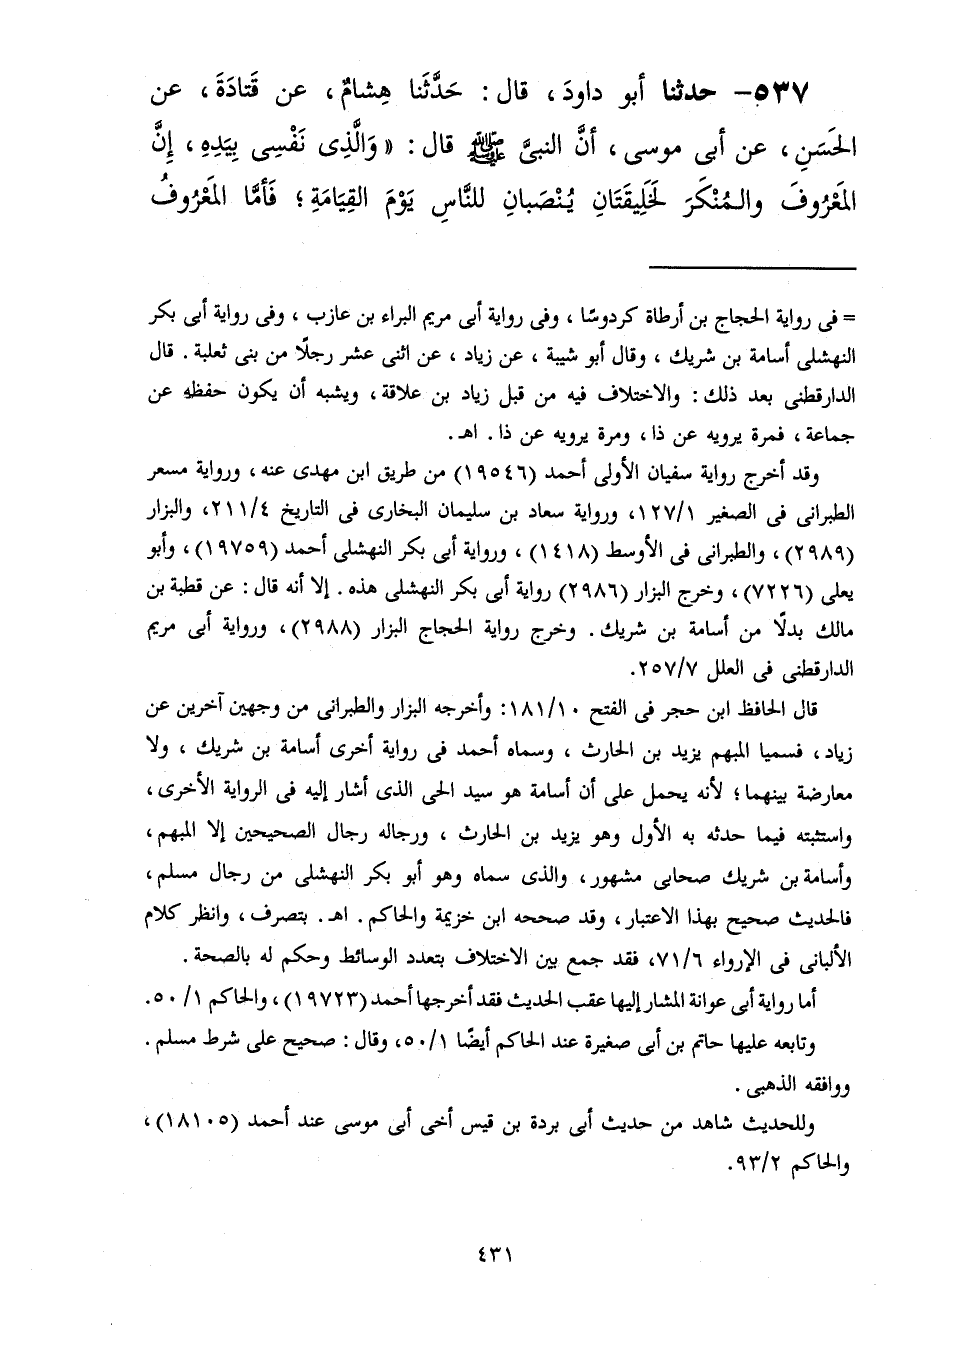 ٥٣٧- حدثنا أبو داودَ ، قال : حَدَّثَنا هِشامٌ ، عن قَتادَةَ ، عن
الحَسَنِ ، عن أبى موسى ، أنَّ النبىَّ ﷺ قال : « وَالَّذِى نَفْسِى بِيَدِهِ ، إِنَّ
المَعْرُوفَ والـمُنْكَرَ لَخَلِيقَتَانِ يُنْصَبانِ للنَّاسِ يَوْمَ القِيَامَةِ ؛ فَأمَّا المَعْرُوفُ
= فى رواية الحجاج بن أرطاة كردوسًا ، وفى رواية أبى مريم البراء بن عازب ، وفى رواية أبى بكر
النهشلى أسامة بن شريك ، وقال أبو شيبة ، عن زياد ، عن اثنى عشر رجلًا من بنى ثعلبة . قال
الدارقطنى بعد ذلك : والاختلاف فيه من قبل زياد بن علاقة ، ويشبه أن يكون حفظه عن
جماعة ، فمرة يرويه عن ذا ، ومرة يرويه عن ذا . اهـ .
وقد أخرج رواية سفيان الأولى أحمد (١٩٥٤٦) من طريق ابن مهدى عنه ، ورواية مسعر
الطبرانى فى الصغير ١٢٧/١، ورواية سعاد بن سليمان البخارى فى التاريخ ٢١١/٤، والبزار
(٢٩٨٩) ، والطبرانى فى الأوسط (١٤١٨) ، ورواية أبى بكر النهشلى أحمد (١٩٧٥٩) ، وأبو
يعلى (٧٢٢٦) ، وخرج البزار (٢٩٨٦) رواية أبى بكر النهشلى هذه . إلا أنه قال : عن قطبة بن
مالك بدلًا من أسامة بن شريك . وخرج رواية الحجاج البزار (٢٩٨٨) ، ورواية أبى مريم
الدارقطنى فى العلل ٢٥٧/٧.
قال الحافظ ابن حجر فى الفتح ١٨١/١٠: وأخرجه البزار والطبرانى من وجهين آخرين عن
زياد ، فسميا المبهم يزيد بن الحارث ، وسماه أحمد فى رواية أخرى أسامة بن شريك ، ولا
معارضة بينهما ؛ لأنه يحمل على أن أسامة هو سيد الحى الذى أشار إليه فى الرواية الأخرى ،
واستثبته فيما حدثه به الأول وهو يزيد بن الحارث ، ورجاله رجال الصحيحين إلا المبهم ،
وأسامة بن شريك صحابى مشهور ، والذى سماه وهو أبو بكر النهشلى من رجال مسلم ،
فالحديث صحيح بهذا الاعتبار ، وقد صححه ابن خزيمة والحاكم . اهـ . بتصرف ، وانظر كلام
الألبانى فى الإرواء ٧١/٦، فقد جمع بين الاختلاف بتعدد الوسائط وحكم له بالصحة .
أما رواية أبى عوانة المشار إليها عقب الحديث فقد أخرجها أحمد (١٩٧٢٣) ، والحاكم ٥٠/١.
وتابعه عليها حاتم بن أبى صغيرة عند الحاكم أيضًا ٥٠/١، وقال : صحيح على شرط مسلم .
ووافقه الذهبى .
وللحديث شاهد من حديث أبى بردة بن قيس أخى أبى موسى عند أحمد (١٨١٠٥) ،
والحاكم ٩٣/٢.
٤٣١